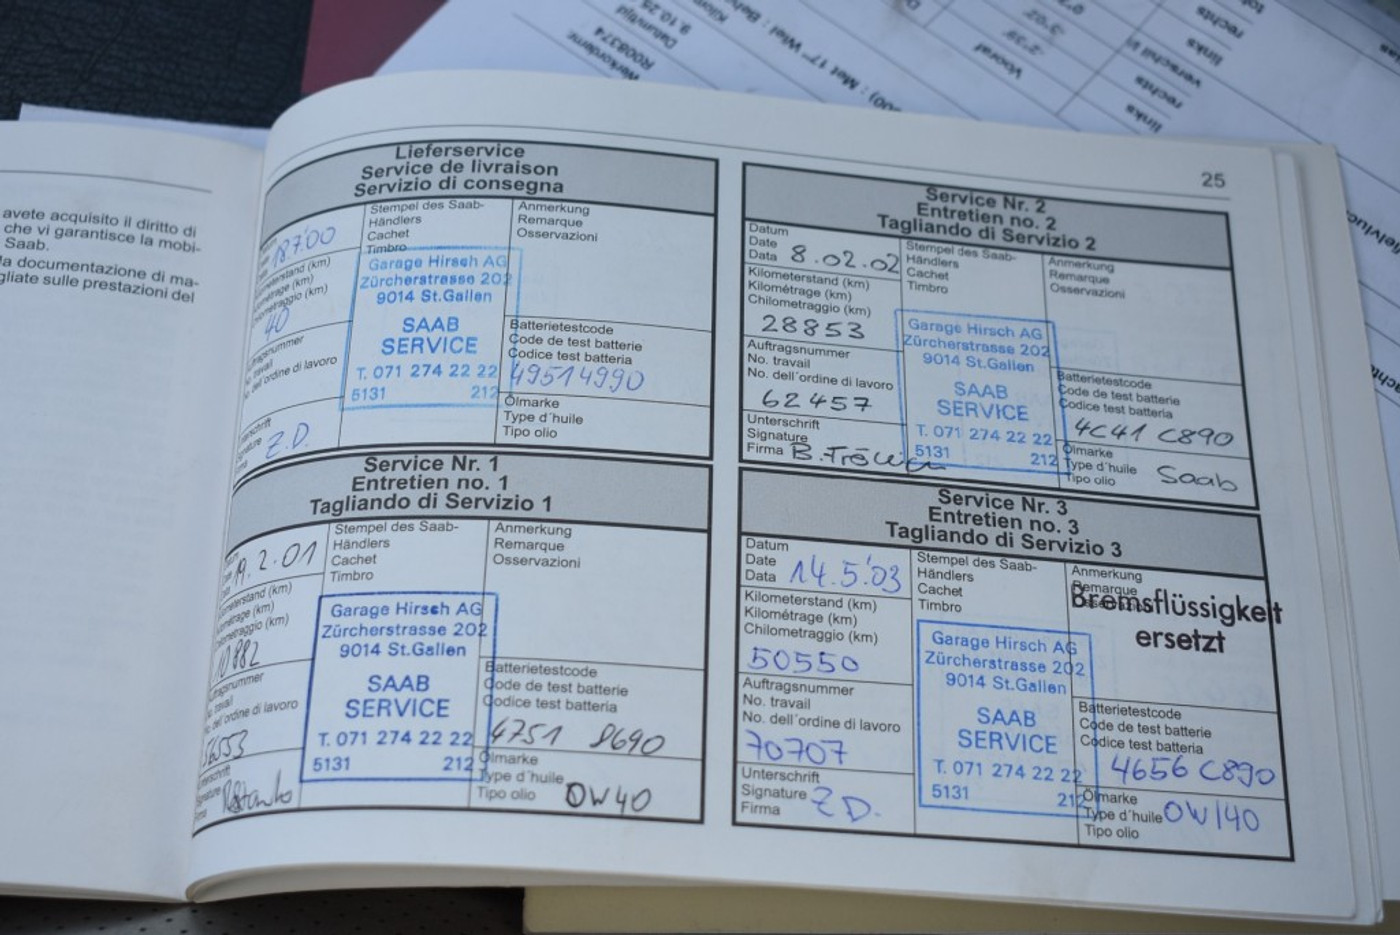 avete acquisito il diritto di
che vi garantisce la mobi-
Saab.
la documentazione di ma-
gliate sulle prestazioni del
Werkordernr.
R008374
Datum/tijd
9.10.25
Vooraf
links
rechts
verschil
links
rechts
25
Lieferservice
Service de livraison
Servizio di consegna
18.7.00
Kilometerstand (km)
Kilométrage (km)
Chilometraggio (km)
40
Auftragsnummer
No. travail
No. dell´ordine di lavoro
Unterschrift
Signature
Firma
Z.D.
Stempel des Saab-
Händlers
Cachet
Timbro
Garage Hirsch AG
Zürcherstrasse 202
9014 St.Gallen
SAAB
SERVICE
T. 071 274 22 22
5131 212
Anmerkung
Remarque
Osservazioni
Batterietestcode
Code de test batterie
Codice test batteria
49514990
Ölmarke
Type d´huile
Tipo olio
Service Nr. 1
Entretien no. 1
Tagliando di Servizio 1
19.2.01
Kilometerstand (km)
Kilométrage (km)
Chilometraggio (km)
10882
Auftragsnummer
No. travail
No. dell´ordine di lavoro
56553
Unterschrift
Signature
Firma
Stempel des Saab-
Händlers
Cachet
Timbro
Garage Hirsch AG
Zürcherstrasse 202
9014 St.Gallen
SAAB
SERVICE
T. 071 274 22 22
5131 212
Anmerkung
Remarque
Osservazioni
Batterietestcode
Code de test batterie
Codice test batteria
4751 8690
Ölmarke
Type d´huile
Tipo olio 0W40
Service Nr. 2
Entretien no. 2
Tagliando di Servizio 2
Datum
Date
Data 8.02.02
Kilometerstand (km)
Kilométrage (km)
Chilometraggio (km)
28853
Auftragsnummer
No. travail
No. dell´ordine di lavoro
62457
Unterschrift
Signature
Firma
Stempel des Saab-
Händlers
Cachet
Timbro
Garage Hirsch AG
Zürcherstrasse 202
9014 St.Gallen
SAAB
SERVICE
T. 071 274 22 22
5131 212
Anmerkung
Remarque
Osservazioni
Batterietestcode
Code de test batterie
Codice test batteria
4C41 C890
Ölmarke
Type d´huile Saab
Tipo olio
Service Nr. 3
Entretien no. 3
Tagliando di Servizio 3
Datum
Date
Data 14.5.'03
Kilometerstand (km)
Kilométrage (km)
Chilometraggio (km)
50550
Auftragsnummer
No. travail
No. dell´ordine di lavoro
70707
Unterschrift
Signature Z.D.
Firma
Stempel des Saab-
Händlers
Cachet
Timbro
Garage Hirsch AG
Zürcherstrasse 202
9014 St.Gallen
SAAB
SERVICE
T. 071 274 22 22
5131 212
Anmerkung
Remarque
Osservazioni
Bremsflüssigkeit
ersetzt
Batterietestcode
Code de test batterie
Codice test batteria
4656 C890
Ölmarke
Type d´huile 0W/40
Tipo olio